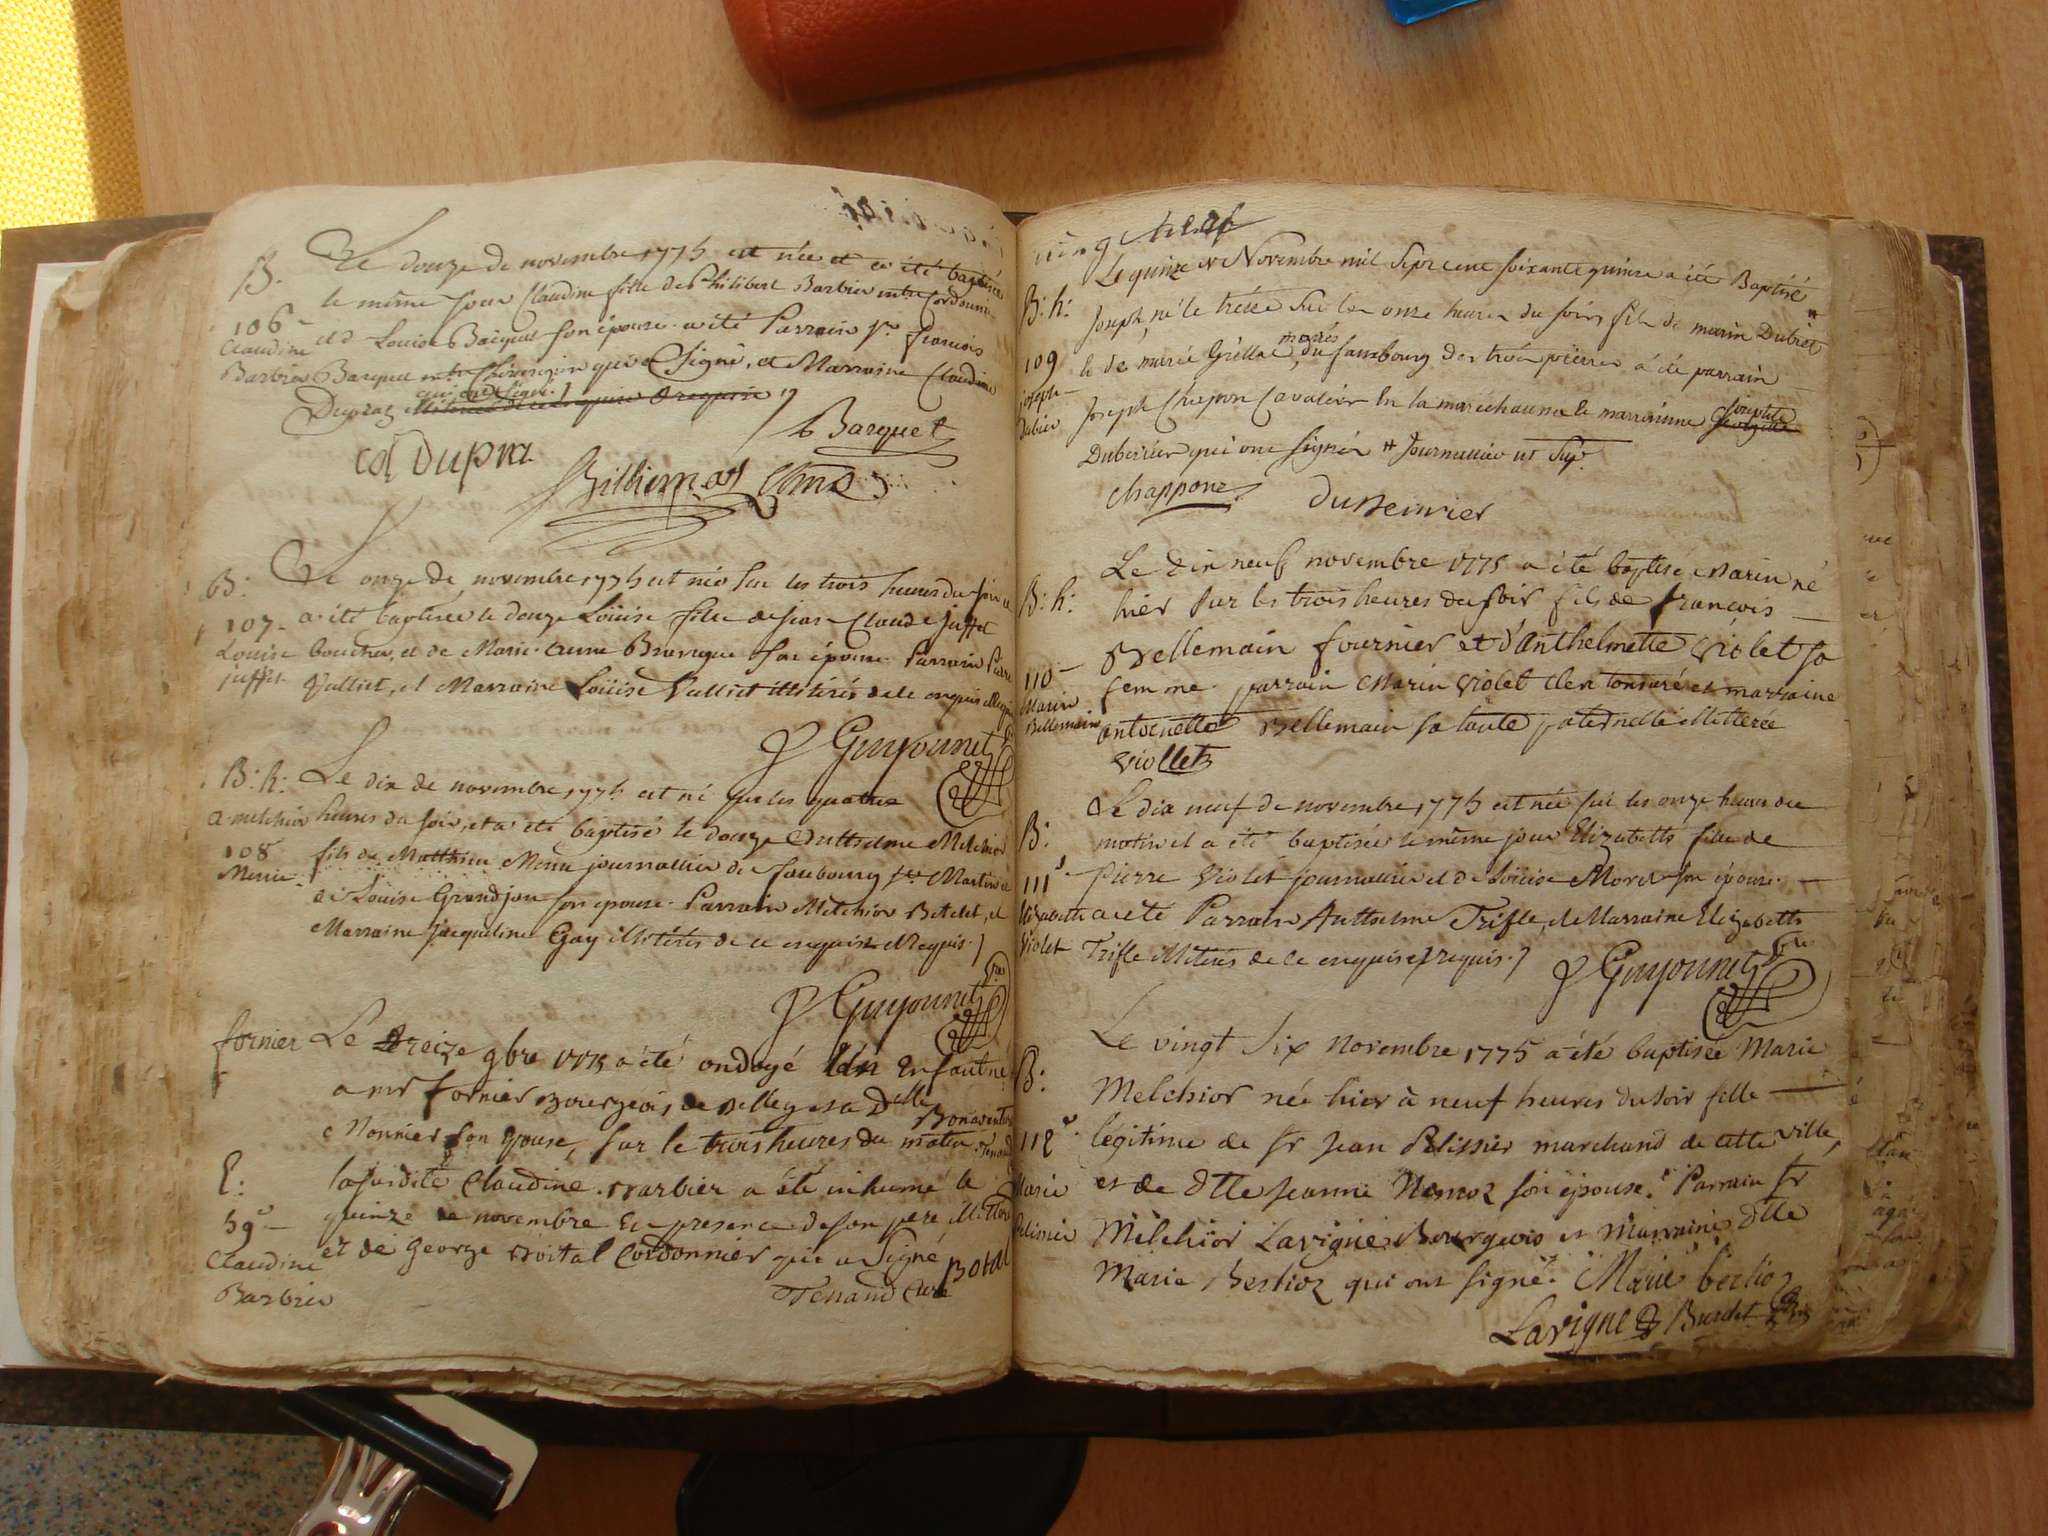 B.
Le douze de novembre 1775 est née et a été baptisée
le même jour Claudine fille de Philibert Barbier cordonnier
106
et de Louise Baquet son épouse a été Parrain françois
Claudine
Barbier
Barquet qui a signé, et Marraine Claudine
Dupraz qui ont signé
Barquet
Dupra
Billiemas
B:
Le onze de novembre 1775 est née sur les trois heures du soir et
107
a été baptisée le douze Loüise fille de jean Claude juffet
Louise
juffet
boucher, et de Marie son épouse Parrain
Vulliet, et Marraine Loüise Vulliet illitérés de ce enquis
Guyounet
B: h:
Le dix de novembre 1775 est né sur les quatre
a. melchior
heures du soir, et a été baptisé le douze Anthelme Melchior
108
Menu
fils de Matthieu Menu journallier du faubourg st Martin et
de Loüise Grandjean son épouse. Parrain Melchior Betelet, et
Marraine jacqueline Gay illitérés de ce enquis et requis
Guyounet
fornier
Le treize 9bre 1775 a été ondoyé un Enfant né
a mr fornier Bourgeois de Belley et a Dlle
Bonaventure
Monnier son epouse, sur le trois heures du matin. Tenand
E:
la susdite Claudine Barbier a été inhumé le
59e
quinze de novembre En presence de son pere
Claudine
Barbier
et de George Boital Cordonnier qui a signé Botal
Tenand Curé
vingt neuf
Le quinze Novembre mil sept cent soixante quinze a été Baptisé
B: h:
Joseph, né le treize sur les onze heures du soir, fils de marin Dubiet
109
joseph
dubier
et de marie Grillet mariés du fauxbourg des trois pierres a été parrain
Joseph Chapon Cavalier de la marechaussée marrainne Josephte
qui ont signés # Journalier ut sup.
Chappone
B: h:
Le dix neuf novembre 1775 a été baptisé Marin né
hier sur les trois heures du soir fils de françois
110
Marin
Bellemain
Bellemain fournier et d'Anthelmette Violet sa
femme. parrain Marin Violet clerc tonsuré et marraine
antoinette Bellemain sa tante paternelle illitterée
Viollet
B:
Le dix neuf de novembre 1775 est née sur les onze heures du
matin et a été baptisée le même jour Elizabeth fille de
111e
Pierre Violet journalier et de Loüise Morel son épouse.
Elizabeth
Violet
a été Parrain Anthelme Trifle, et Marraine Elizabeth
Trifle illitérés de ce enquis et requis.
Guyounet
B:
Le vingt six Novembre 1775 a été baptisée Marie
Melchior née hier à neuf heures du soir fille
112e
Marie
Pelissier
légitime de Sr Jean Pelissier marchand de cette ville,
et de dlle Jeanne Nemoz son épouse. Parrain Sr
Melchior Lavigne Bourgeois et Marraine dlle
Marie Berlioz qui ont signé. Marie berlioz
Lavigne Burdet